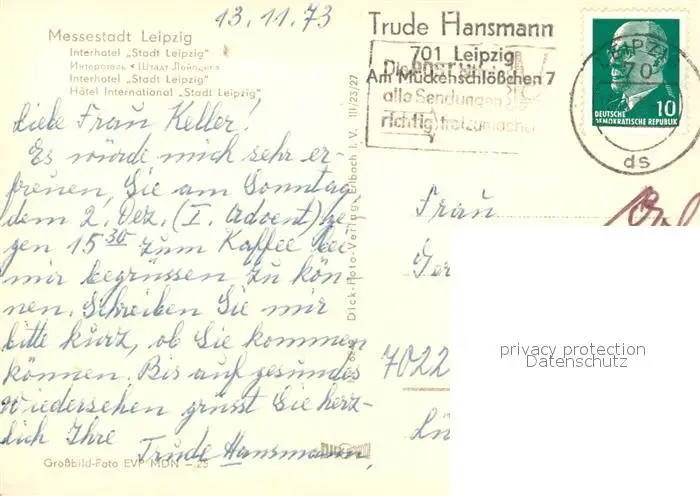 13.11.73
Messestadt Leipzig
Interhotel „Stadt Leipzig“
Интеротель «Штадт Лейпциг»
Interhotel „Stadt Leipzig“
Hôtel International „Stadt Leipzig“
Liebe Frau Keller!
Es würde mich sehr er-
freuen, Sie am Sonntag
dem 2. Dez. (I. Advent) ge-
gen 15 30 zum Kaffee bei
mir begrüssen zu kön-
nen. Schreiben Sie mir
bitte kurz, ob Sie kommen
können. Bis auf gesundes
Wiedersehen grüsst Sie herz-
lich Ihre
Trude Hansmann,
Großbild-Foto EVP MDN –,25
Dick-Foto-Verlag, Erlbach i. V. III/23/27
Trude Hansmann
701 Leipzig
Am Mückenschlößchen 7
Die Post
alle Sendungen
richtig freizumachen
LEIPZIG
70
ds
10
DEUTSCHE
DEMOKRATISCHE REPUBLIK
Frau
Ger
7022
Lü
privacy protection
Datenschutz